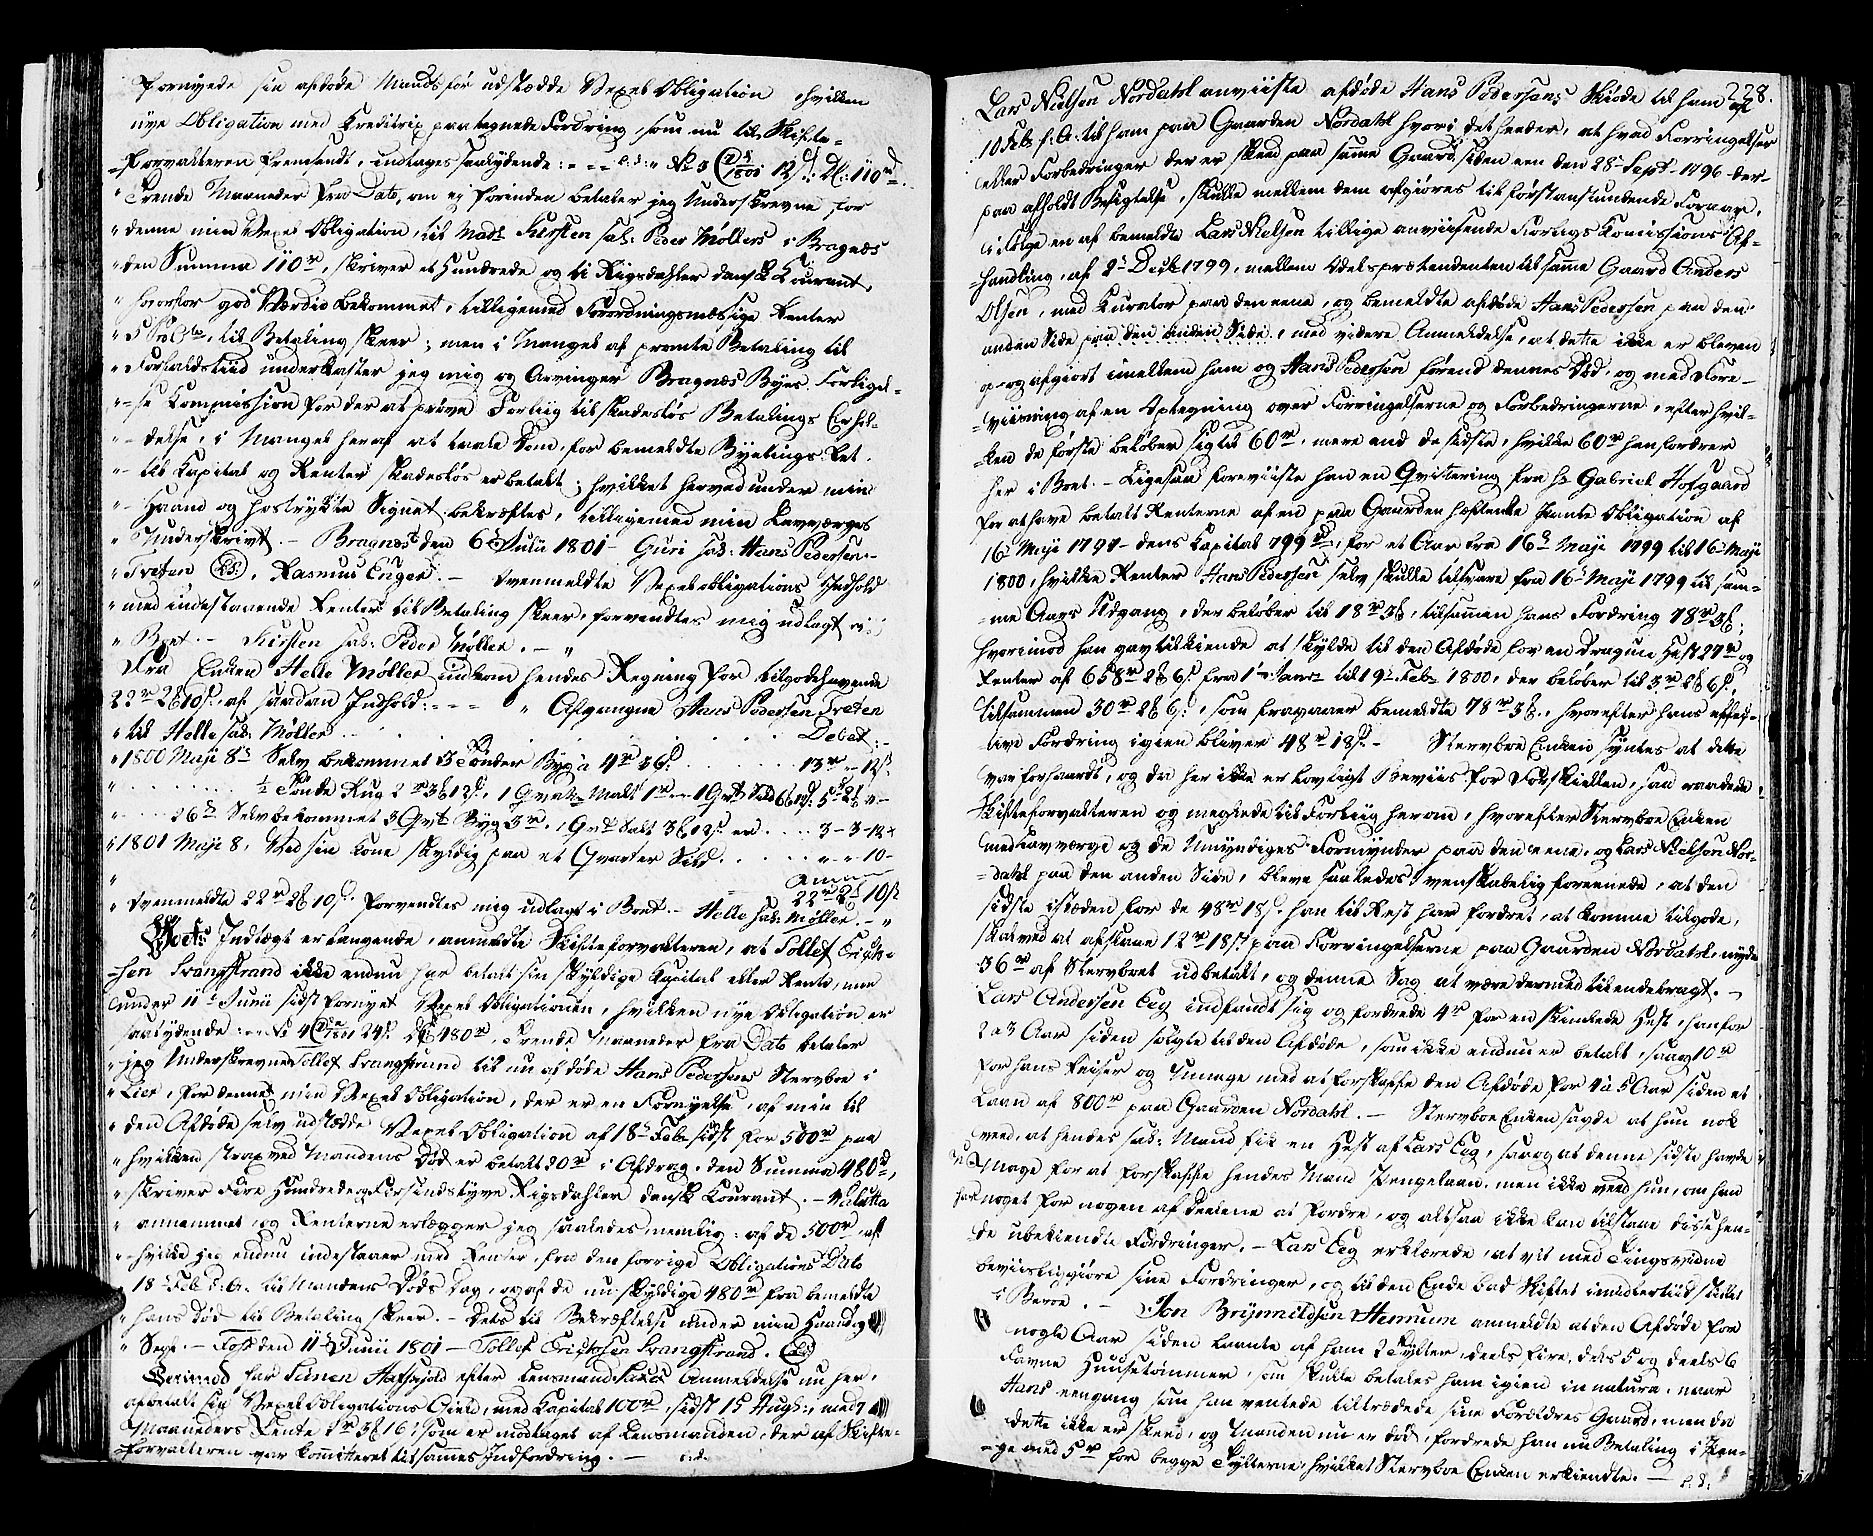 fornyede sin afdöde Mands for udstædde Vexel Obligation, hvilken
nye Obligation med Kreditrix paategnede Fordring, som nu til Skifte-
-forvalteren fremsendt, indtages saalydende: - - - No 3 1801 12 s. Dl: 110 rd.
" Trende Maaneder fra Dato, om ej forinden betaler jeg Underskrevne for
" denne min Vexel Obligation, til Madm Kirsten sal: Peder Møllers i Bragnæs
" den Summa 110 rd, skriver et Hundrede og ti Rigsdahler dansk Courant,
" hvorfor god Værdie bekommet, tilligemed Forordningsmæssige Renter
" 5 Pro Cto, til Betaling skeer; men i Mangel af promte Betaling til
" Forfaldstiid underkaster jeg mig og Arvinger Bragnæs Byes Forligel-
" -se Commission for der at prøve Forliig til skadesløs Betalings Erhol-
" -delse, i Mangel heraf at taale Dom, for bemeldte Byetings Ret
" til Capital og Renter skadesløs er betalt; hvilket herved under min
" Haand og hostrykte Signet bekræftes, tilligemed min Lavværges
" Underskrivt. - Bragnæs den 6 Julii 1801 - Guri sal: Hans Pedersen
" Treten (LS:). Rasmus Enger. - Ovenmeldte Vexelobligations Indhold
" med indestaaende Renter til Betaling skeer, forvendtes mig udlagt i
" Boet. - Kirsten sal: Peder Møller. - "
Fra Enken Helle Møller indkom hendes Regning for tilgodehavende
22 rd 2 10 s. af saadan Indhold: - - - " Afgangne Hans Pedersen Treten
" til Helle sal: Møller . . . . Debet: -
" 1800 Maji 8de Selv bekommet 3 Tønder Byg a 4 rd 36 s. . . . . 13 rd - 12 s.
" . . . . ½ Tønde Rug 2 rd 3 12 s, 1 Qvart Malt 1 rd - 1 Qvt Sild
" . . . 26de Selv bekommet 3 Qvt Byg 3 rd, 1 Qvt Salt 3 12 s er . . . . 3 - 3 - 12
" 1801 Maji 8, Ved sin Kone skyldig paa et Qvarter Sild. . . . . " - " - 10 -
" 22 rd 2 10 s
" Ovenmeldte 22 rd 2 10 s. forvendtes mig udlagt i Boet. - Helle sal: Møller. - "
Boets Indtægt erlangende, anmeldte Skifteforvalteren, at Tollef Christo-
-sen Svangstrand ikke endnu har betalt sin skyldige Capital eller Rente, men
under 11te Junii sidst fornyet Vexel Obligationen, hvilken nye Obligation er
saalydende: - - No 4 1801 24 s. 480 rd. Trende Maaneder fra Dato betaler
" jeg Underskrevne Tollef Svangstrand til nu afdöde Hans Pedersens Stervboe i
" Lier, for denne min Vexel Obligation, der er en Fornyelse, af min til
" den Afdöde selv udstædte Vexel Obligation af 18de Feb: sidst for 500 rd paa
" hvilken strax ved Mandens Död er betalt 20 rd i Afdrag, den Summa 480 rd,
" skriver Fire Hundrede og Firsindstyve Rigsdahler dansk Courant. - Valutta
" annammet, og Renterne erlægger jeg saaledes, nemlig: af de 500 rd, af
" hvilke jeg endnu indestaaer med Renter, fra den forrige Obligations Dato
" 18 Feb: d: A: til Mandens Döds Dag, og af de nu skyldige 480 rd fra bemeldte
" hans Död til Betaling skeer. - Dets til Bekræftelse under min Haand og
" Segl. - Foss den 11 Junii 1801 - Tollef Cristofsen Svangstrand. (LS)
Derimod har Simen Hafsrjold efter Lensmand Anmeldelse nu her,
afbetalt sin Vexel Obligations Gield, med Capital 100 rd, sidst 15 Aug:, med 7
Maaneders Rente 2 rd 3 16 s, som er modtaget af Lensmanden, der af Skifte-
forvalteren var Comitteret til sammes Indfordring. -
228.
Lars Nielsen Nordahl anviiste afdöde Hans Pedersens Skiöde til ham af
10 Feb: f: A: til ham paa Gaarden Nordahl hvori det heeder, at hvad Forringelser
eller Forbedringer der er skeed paa samme Gaard, siden een den 28de Sept: 1796 der-
paa afholdt Besigtelse, skulle mellem dem afgiöres til förstanstundende Foraar,
ifölge en af bemeldte Lars Nielsen tillige anviisende Forligs Comissions Af-
-handling, af 2de Decbr 1799, mellem Odelsprætendenten til samme Gaard Anders
Olsen, med Curator paa den eene, og bemeldte afdöde Hans Pedersen paa den
anden Side paa den anden Side, med videre Anmeldelse, at dette ikke er bleven
og afgiort imellem ham og Hans Pedersen förend dennes Död, og med Fore-
-viisning af en Optegning over Forringelserne og Forbedringerne, efter hvil-
-ken de förste belöber sig til 60 rd, mere end de sidste, hvilke 60 rd han fordrer
her i Boet. - Ligesaa foreviiste han en Qvittering fra Hr Gabriel Hofgaard
for at have betalt Renterne af en paa Gaarden heftende Pante Obligation af
16de Maji 1797 - dens Capital 799 rd, for et Aar fra 16de Maji 1799 til 16de Maji
1800, hvilke Renter Hans Pedersen selv skulle tilsvare fra 16de Maji 1799 til sam-
-me Aars Udgang, der belöber til 18 rd 3, tilsammen hans Fordring 78 rd 3;
Hvorimod han gav tilkiende at skylde til den Afdöde for en Dragun Hest 27 rd og
Renter af 658 rd 2 6 s fra 1te Janr til 19de Feb: 1800, der belöber til 3 rd 2 6 s,
tilsammen 30 rd 2 6 s, som fragaaer bemeldte 78 rd 3, hvorefter hans effec-
-tive Fordring igien bliver 48 rd 18 s. - Stervboe Enken syntes at dette
var forhaardt, og da her ikke er lovligt Beviis for Forskiellen, saa raadede
Skifteforvalteren og meglede til Forliig herom, hvorefter Stervboe Enken
med Lavværge og de Umyndiges Formynder paa den eene, og Lars Nielsen Nor-
-dahl paa den anden Side, bleve saaledes venskabelig foreenede, at den
sidste istæden for de 48 rd 18 s. han til Rest har fordret, at komme tilgode,
skal ved at afstaae 12 rd 18 s. paa Forringelserne paa Gaarden Nordahl, nyde
36 rd af Stervboet udbetalt, og denne Sag at være dermed tilendebragt. -
Lars Andersen Eeg indfandt sig og fordrede 4 rd for en skimlede Hest, han for
2 a 3 Aar siden solgte til den Afdöde, som ikke endnu er betalt, saa og 10 rd
for hans Reiser og Umage med at forskaffe den Afdöde for 4 a 5 Aar siden et
Laan af 800 rd paa Gaarden Nordahl. - Stervboe Enken sagde at hun nok
veed, at hendes sal: Mand fik en Hest af Lars Eeg, saa og at denne sidste havde
Umage for at forskaffe hendes Mand Pengelaan, men ikke veed hun, om han
har noget for nogen af deelene at fordre, og altsaa ikke kan tilstaae disse hen-
de ubekiendte Fordringer. - Lars Eeg erklærede, at vil med Tingsvidne
beviisliggiöre sine Fordringer, og til den Ende bad Skiftet imidlertiid stillet
i Beroe. - Jon Brynnildsen Hennum anmeldte at den Afdöde for
nogle Aar siden laante af ham 2 Tylter, deels fire, dels 5 og deels 6
Favne Huusetömmer, som skulle betales ham igien in natura, naar
Hans eengang som han ventede tiltrædede sine Forældres Gaard, men da
dette ikke er skeed, og Manden nu er död, fordrede han nu Betaling i Pen-
-ge med 5 rd for begge Tylterne, hvilket Stervboe Enken erkiendte. -